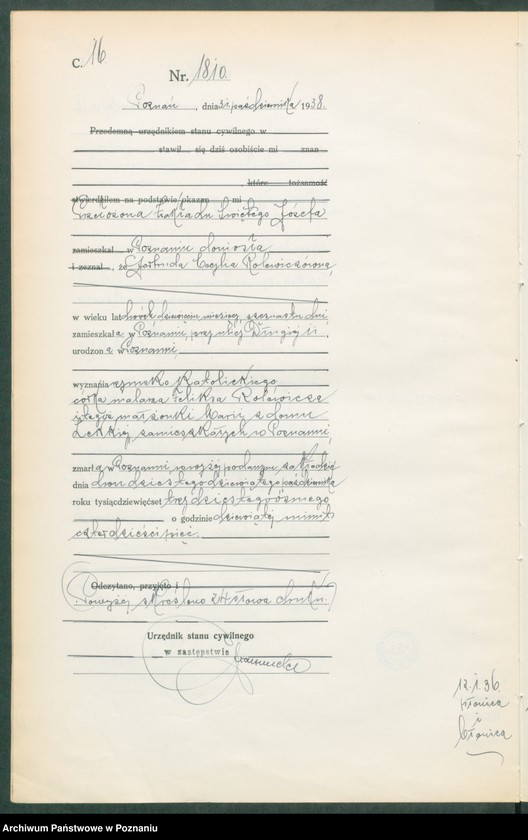 C. 16
Nr. 1810
Poznań, dnia 31 października 1938.
Przedemną urzędnikiem stanu cywilnego w
stawił się dziś osobiście mi znan
, które tożsamość
stwierdziłem na podstawie okazan mi
Przełożona Zakładu Świętego Józefa
zamieszkał w Poznaniu doniosła
i zeznał, że Gertruda Cecylia Rolewiczówna,
w wieku lat dwóch dziewięciu miesięcy szesnastu dni
zamieszkała w Poznaniu, przy ulicy Długiej 11,
urodzona w Poznaniu
wyznania rzymsko katolickiego
córka malarza Feliksa Rolewicza
i tegoż małżonki Marii z domu
zamieszkałych w Poznaniu,
zmarła w Poznaniu, w wyżej podanym zakładzie
dnia dwudziestego dziewiątego października
roku tysiącdziewięćset trzydziestego ósmego
o godzinie dziewiątej minut
czterdzieści pięć.
Odczytano, przyjęto i
Powyżej skreślono 24 słowa druku.
Urzędnik stanu cywilnego
w zastępstwie
12.1.36.
błonica
i
błonica
Archiwum Państwowe w Poznaniu